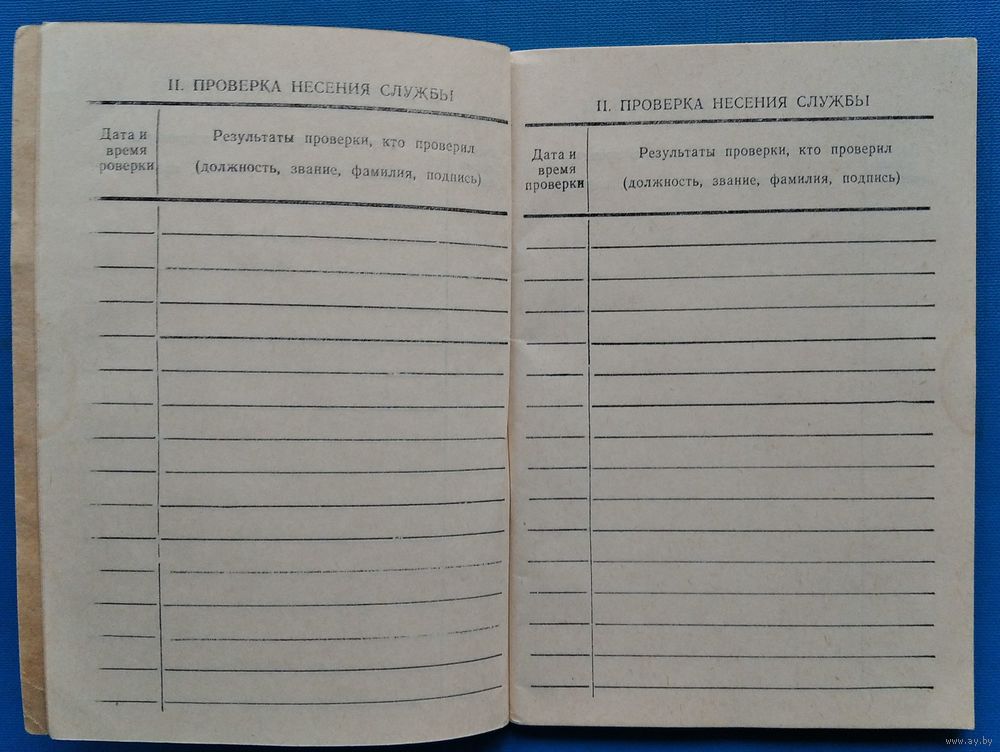 II. ПРОВЕРКА НЕСЕНИЯ СЛУЖБЫ
Дата и
время
роверки
Результаты проверки, кто проверил
(должность, звание, фамилия, подпись)
II. ПРОВЕРКА НЕСЕНИЯ СЛУЖБЫ
Дата и
время
проверки
Результаты проверки, кто проверил
(должность, звание, фамилия, подпись)
www.ay.by